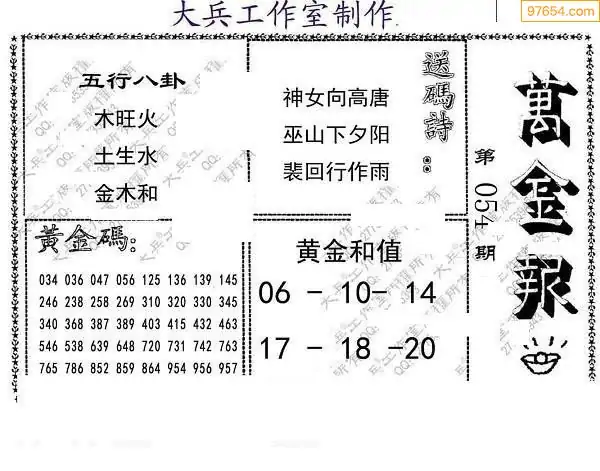 大兵工作室制作
97654.com
五行八卦
木旺火
土生水
金木和
送碼詩：
神女向高唐
巫山下夕阳
裴回行作雨
萬金報
第054期
黃金碼：
034 036 047 056 125 136 139 145
246 238 258 269 310 320 330 345
340 368 387 389 403 415 432 463
546 538 639 648 720 731 742 763
765 786 852 859 864 954 956 957
黄金和值
06 - 10- 14
17 - 18 -20